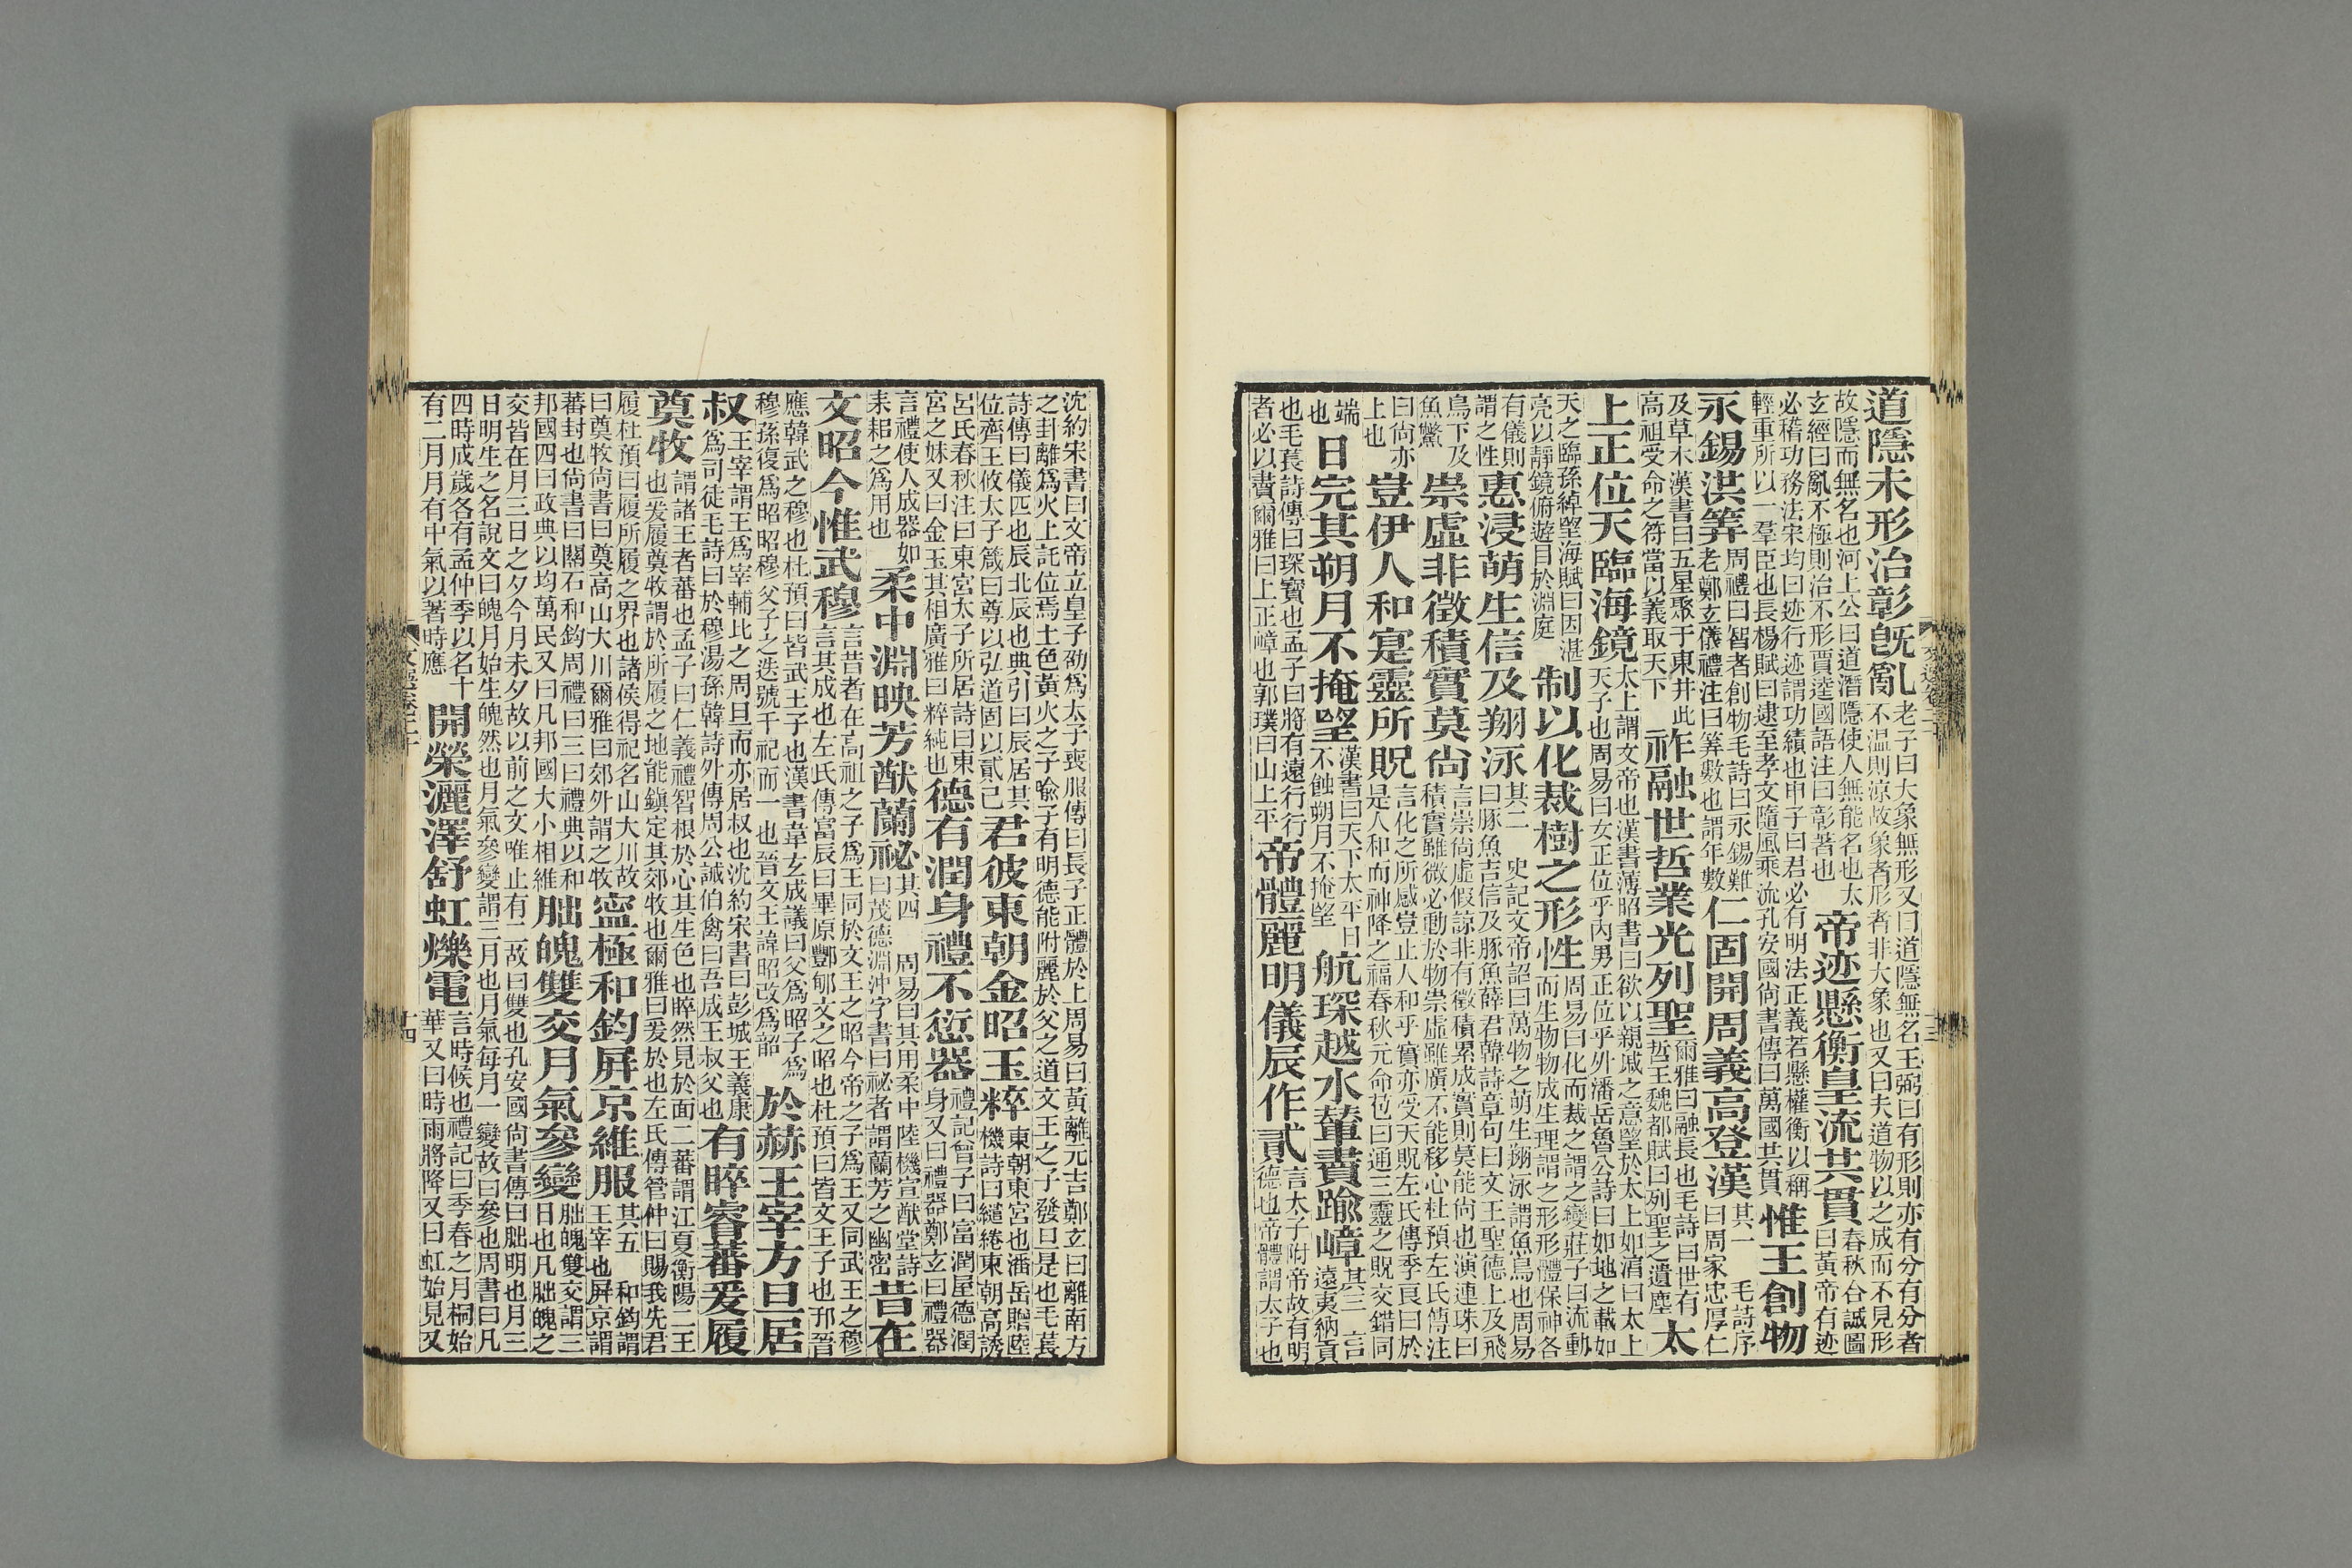 道隱未形治彰旣亂老子曰大象無形又曰道隱無名王弼曰有形則亦有分有分者不溫則涼故象者形者非大象也又曰夫道物以之成而不見形
故隱而無名也河上公曰道潛隱使人無能名也太玄經曰亂不極則治不形賈逵國語注曰彰著也帝迹懸衡皇流共貫春秋合誠圖曰黃帝有迹
必稽功務法宋均曰迹行迹謂功績也申子曰君必有明法正義若懸權衡以稱輕重所以一羣臣也長楊賦曰逮至孝文隨風乘流孔安國尚書傳曰萬國其貫惟王創物
永錫洪筭周禮曰智者創物毛詩曰永錫難老鄭玄儀禮注曰筭數也謂年數仁固開周義高登漢其一 毛詩序曰周家忠厚仁
及草木漢書曰五星聚于東井此高祖受命之符當以義取天下祚融世哲業光列聖爾雅曰融長也毛詩曰世有哲王魏都賦曰列聖之遺塵太
上正位天臨海鏡太上謂文帝也漢書薄昭書曰欲以親戚之意望於太上如淳曰太上天子也周易曰女正位乎內男正位乎外潘岳魯公詩曰如地之載如
天之臨孫綽望海賦曰因湛亮以靜鏡俯遊目於淵庭制以化裁樹之形性周易曰化而裁之謂之變莊子曰流動而生物物成生理謂之形形體保神各
有儀則謂之性惠浸萌生信及翔泳其二 史記文帝詔曰萬物之萌生翔泳謂魚鳥也周易曰豚魚吉信及豚魚薛君韓詩章句曰文王聖德上及飛
鳥下及魚鱉崇虛非徵積實莫尚言崇尚虛假諒非有徵積累成實則莫能尚也演連珠曰積實雖微必動於物崇虛雖廣不能移心杜預左氏傳注
曰尚亦上也豈伊人和寔靈所貺言化之所感豈止人和乎實亦受天貺左氏傳季良曰於是人和而神降之福春秋元命苞曰通三靈之貺交錯同
端也日完其朔月不掩望漢書曰天下太平日不蝕朔月不掩望航琛越水輦賮踰嶂其三 言遠夷納貢
也毛萇詩傳曰琛寶也孟子曰將有遠行行者必以賮爾雅曰上正嶂也郭璞曰山上平帝體麗明儀辰作貳言太子附帝故有明德也帝體謂太子也
沈約宋書曰文帝立皇子劭爲太子喪服傳曰長子正體於上周易曰黃離元吉鄭玄曰離南方之卦離爲火上託位焉土色黃火之子喻子有明德能附麗於父之道文王之子發旦是也毛萇
詩傳曰儀匹也辰北辰也典引曰辰居其位齊王攸太子箴曰尊以弘道固以貳己君彼東朝金昭玉粹東朝東宮也潘岳贈陸機詩曰繾綣東朝高誘
呂氏春秋注曰東宮太子所居詩曰東宮之妹又曰金玉其相廣雅曰粹純也德有潤身禮不愆器禮記曾子曰富潤屋德潤身又曰禮器鄭玄曰禮器
言禮使人成器如耒耜之爲用也柔中淵映芳猷蘭祕其四 周易曰其用柔中陸機宣猷堂詩曰茂德淵沖字書曰祕者謂蘭芳之幽密昔在
文昭今惟武穆言昔者在高祖之子爲王同於文王之昭今帝之子爲王又同武王之穆言其成也左氏傳富辰曰畢原酆郇文之昭也杜預曰皆文王子也邘晉
應韓武之穆也杜預曰皆武王子也漢書韋玄成議曰父爲昭子爲穆孫復爲昭昭穆父子之迭號千祀而一也晉文王諱昭改爲韶於赫王宰方旦居
叔王宰謂王爲宰輔比之周旦而亦居叔也沈約宋書曰彭城王義康爲司徒毛詩曰於穆湯孫韓詩外傳周公誡伯禽曰吾成王叔父也有睟睿蕃爰履
奠牧謂諸王者蕃也孟子曰仁義禮智根於心其生色也睟然見於面二蕃謂江夏衡陽二王也爰履奠牧謂於所履之地能鎮定其郊牧也爾雅曰爰於也左氏傳管仲曰賜我先君
履杜預曰履所履之界也諸侯得祀名山大川故曰奠牧尚書曰奠高山大川爾雅曰郊外謂之牧寍極和鈞屏京維服其五 和鈞謂王宰也屏京謂
蕃封也尚書曰關石和鈞周禮曰三曰禮典以和邦國四曰政典以均萬民又曰凡邦國大小相維朏魄雙交月氣參變朏魄雙交謂三日也凡朏魄之
交皆在月三日之夕今月未夕故以前之文唯止有二故曰雙也孔安國尚書傳曰朏明也月三日明生之名說文曰魄月始生魄然也月氣參變謂三月也月氣每月一變故曰參也周書曰凡
四時成歲各有孟仲季以名十有二月月有中氣以著時應開榮灑澤舒虹爍電言時候也禮記曰季春之月桐始華又曰時雨將降又曰虹始見又